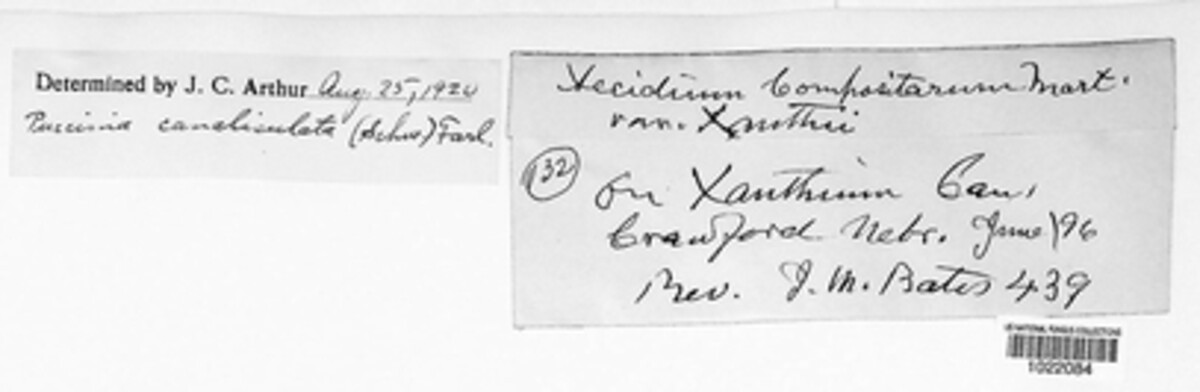 Determined by J. C. Arthur Aug. 25, 1924
Puccinia canaliculata (Schw.) Farl.
Aecidium Compositarum Mart.
var. Xanthii
132 On Xanthium Can.
Crawford Nebr. June '96
Rev. J. M. Bates 439
US NATIONAL FUNGUS COLLECTIONS
1022084